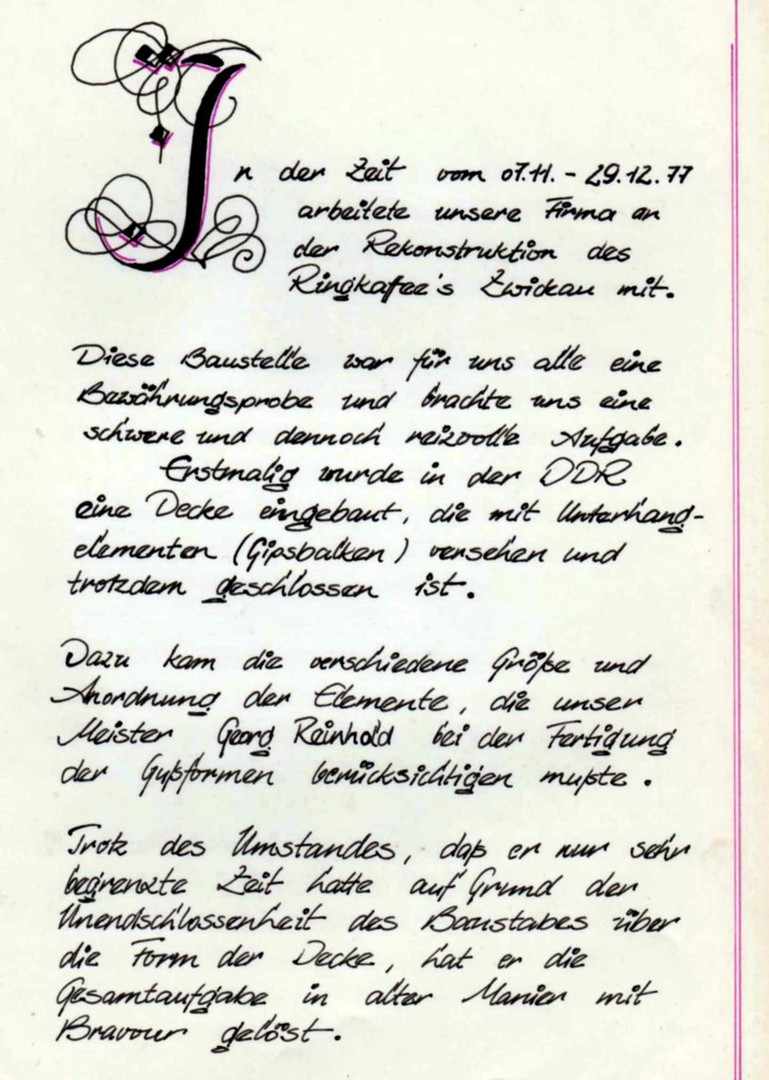 In der Zeit vom 07.11. - 29.12.77
arbeitete unsere Firma an
der Rekonstruktion des
Ringkafee's Zwickau mit.
Diese Baustelle war für uns alle eine
Bewährungsprobe und brachte uns eine
schwere und dennoch reizvolle Aufgabe.
Erstmalig wurde in der DDR
eine Decke eingebaut, die mit Unterhang-
elementen (Gipsbalken) versehen und
trotzdem geschlossen ist.
Dazu kam die verschiedene Größe und
Anordnung der Elemente, die unser
Meister Georg Reinhold bei der Fertigung
der Gußformen berücksichtigen mußte.
Trotz des Umstandes, daß er nur sehr
begrenzte Zeit hatte auf Grund der
Unendschlossenheit des Baustabes über
die Form der Decke, hat er die
Gesamtaufgabe in alter Manier mit
Bravour gelöst.